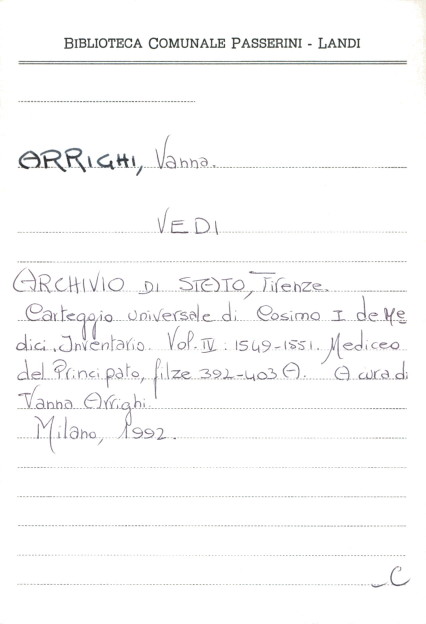 BIBLIOTECA COMUNALE PASSERINI - LANDI
ARRIGHI, Vanna.
VEDI
ARCHIVIO DI STATO, Firenze.
Carteggio universale di Cosimo I de Me
dici. Inventario. Vol. IV: 1549-1551. Mediceo
del Principato, filze 392-403 A. A cura di
Vanna Arrighi.
Milano, 1992.
_C